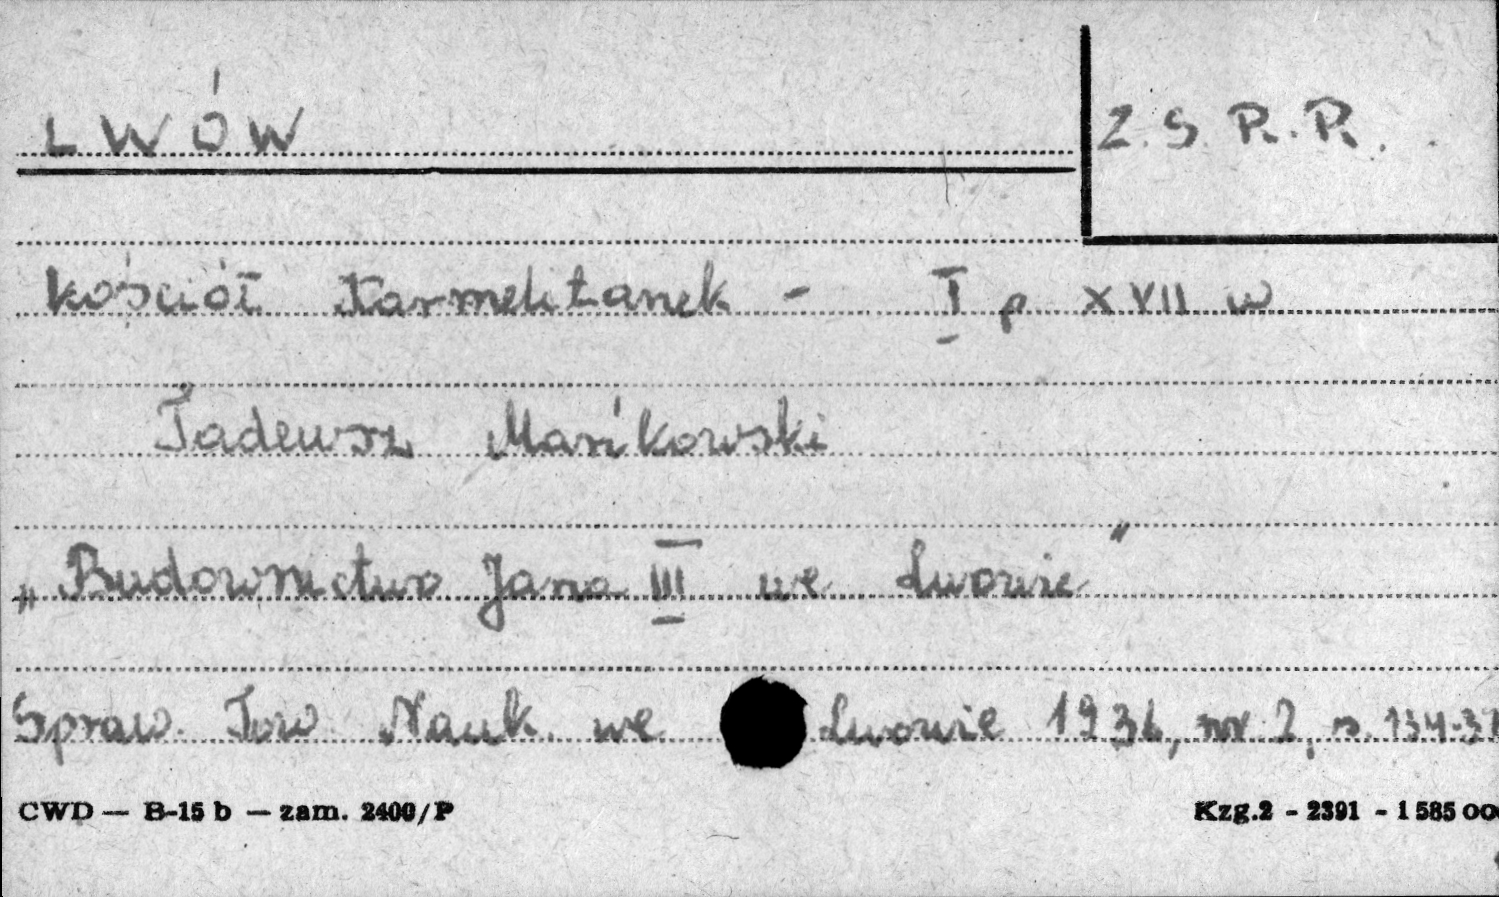 LWÓW
Z.S.R.R.
kościół Karmelitanek - I p XVII w
Tadeusz Mańkowski
„Budownictwo Jana III we Lwowie"
Spraw. Tow. Nauk. we Lwowie 1936, nr 2, s. 134-37
CWD — B-15 b — zam. 2400/P
Kzg.2 - 2391 - 1 585 000